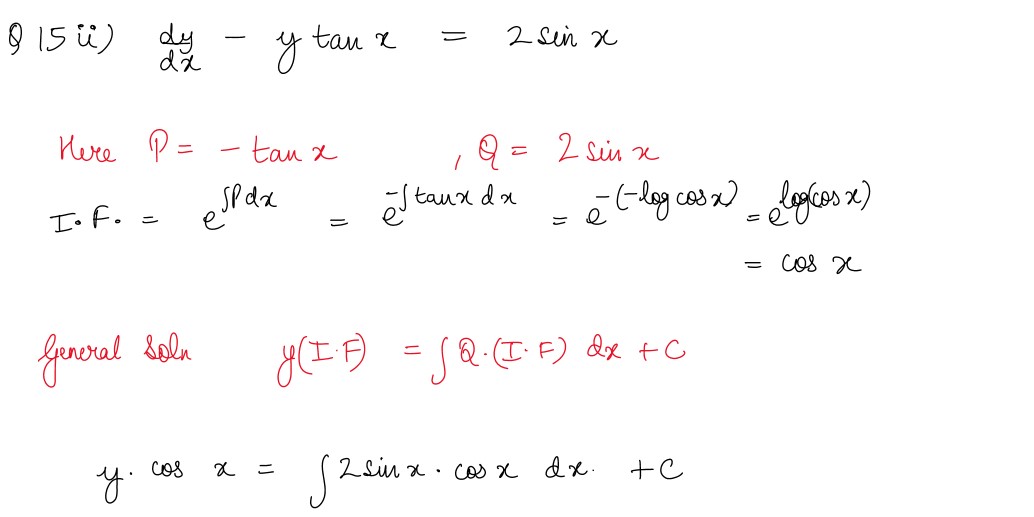 Q 15 ii) dy/dx - y tan x = 2 sin x
Here P = - tan x , Q = 2 sin x
I.F. = e^∫P dx = e^-∫tan x dx = e^-(-log cos x) = e^log(cos x)
= cos x
General Soln y(I.F) = ∫Q.(I.F) dx + C
y. cos x = ∫2 sin x . cos x dx. + C